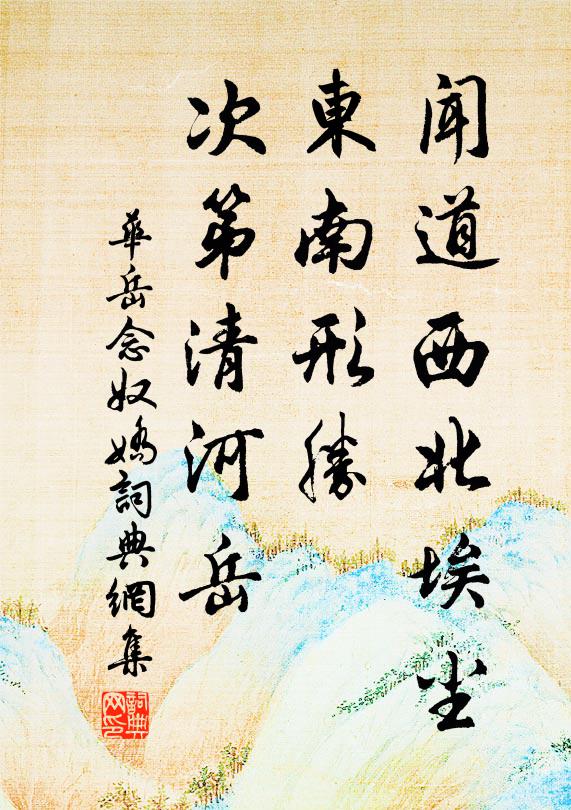 聞道西北埃尘
東南形勝
次第清河岳
華岳念奴嬌詞典網集
詞典
网印